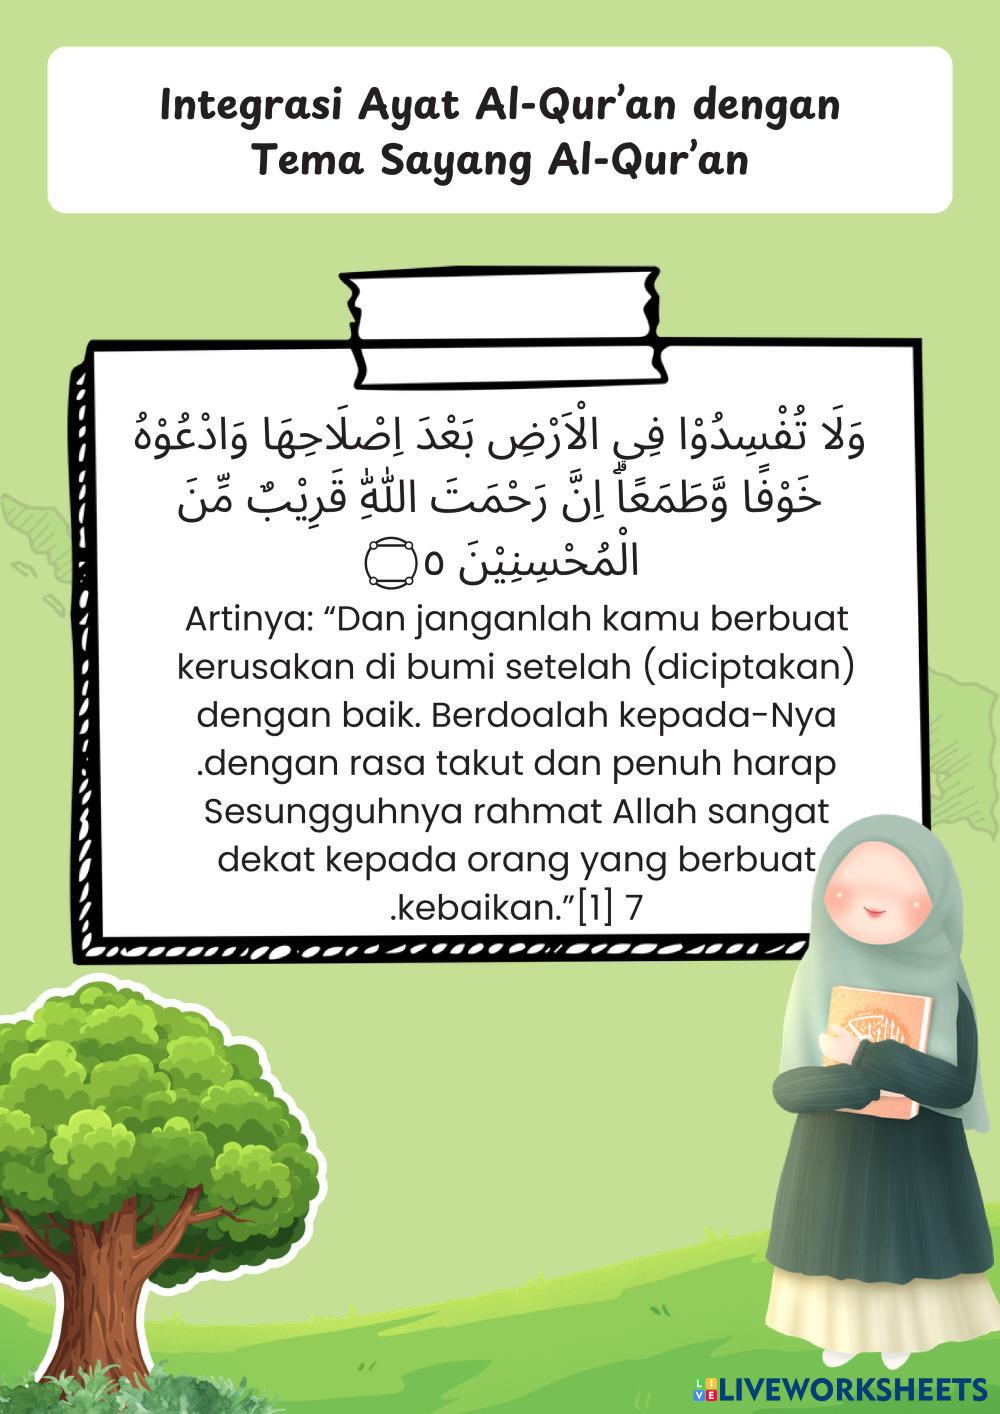 Integrasi Ayat Al-Qur’an dengan
Tema Sayang Al-Qur’an
وَلَا تُفْسِدُوْا فِى الْاَرْضِ بَعْدَ اِصْلَاحِهَا وَادْعُوْهُ
خَوْفًا وَّطَمَعًاۗ اِنَّ رَحْمَتَ اللّٰهِ قَرِيْبٌ مِّنَ
الْمُحْسِنِيْنَ ٥۝
Artinya: “Dan janganlah kamu berbuat
kerusakan di bumi setelah (diciptakan)
dengan baik. Berdoalah kepada-Nya
.dengan rasa takut dan penuh harap
Sesungguhnya rahmat Allah sangat
dekat kepada orang yang berbuat
.kebaikan.”[1] 7
LIVEWORKSHEETS